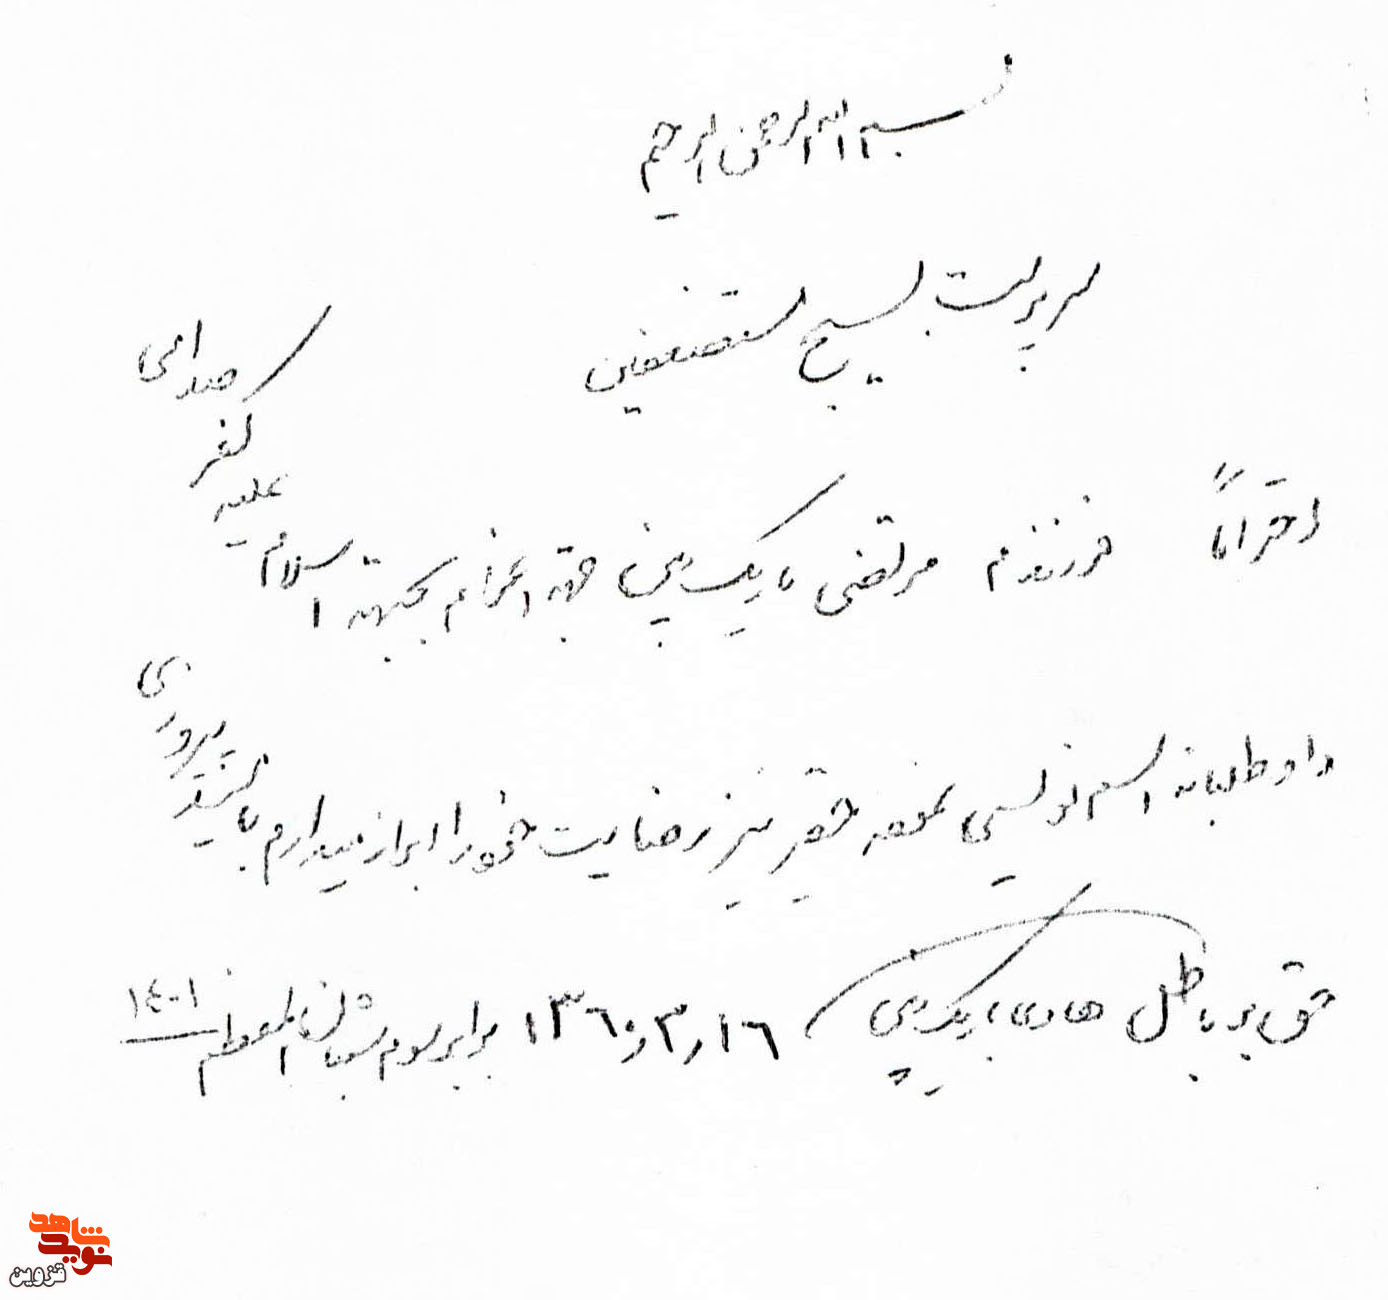 بسم الله الرحمن الرحیم
سرپرست بسیج مستضعفین
احتراماً فرزندم مرتضی باریک بین جهة اعزام بجبهه اسلام علیه کفر صدامی
داوطلبانه اسم نویسی نموده حقیر نیز رضایت خود را ابراز میدارم بامید پیروزی
حق بر باطل هادی باریک بین ۱۳۶۰٫۳٫۱۶ برابر سوم شعبان المعظم ۱٤۰۱
نوید شاهد
قزوین